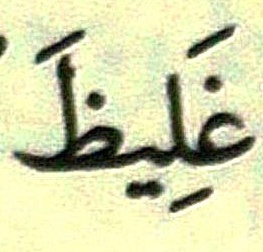 غَلِيظَ